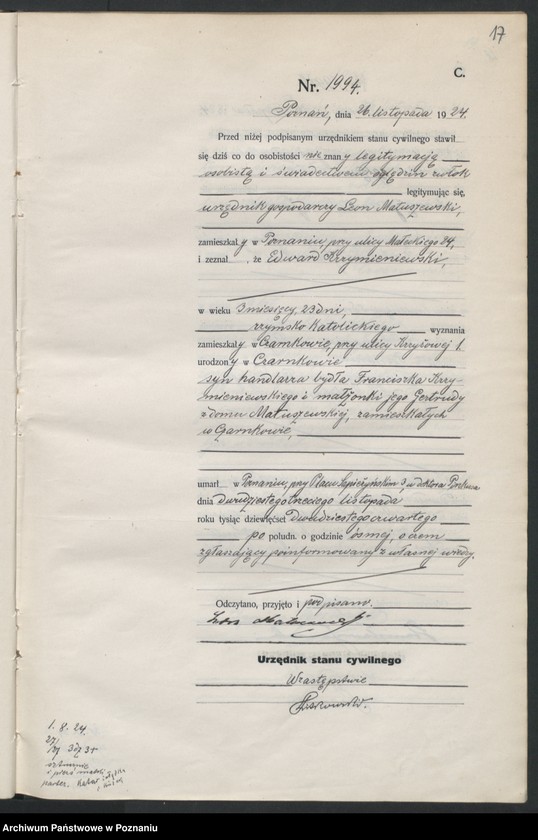 17
C.
Nr. 1994.
Poznań, dnia 26. listopada 1924.
Przed niżej podpisanym urzędnikiem stanu cywilnego stawił
się dziś co do osobistości znany legitymacją
osobistą i świadectwem oględzin zwłok
legitymując się,
urzędnik gospodarczy Leon Matuszewski,
zamieszkały w Poznaniu, przy ulicy Małeckiego 24,
i zeznał, że Edward Krzymieniewski,
w wieku 3 miesięcy, 23 dni,
rzymsko katolickiego wyznania
zamieszkały w Czarnkowie, przy ulicy Krzyżowej 1.
urodzony w Czarnkowie
syn handlarza bydła Franciszka Krzy-
mieniewskiego i małżonki jego Gertrudy
z domu Matuszewskiej, zamieszkałych
w Czarnkowie,
umarł w Poznaniu, przy Placu Sapieżyńskim 3, u doktora
dnia dwudziestego trzeciego listopada
roku tysiąc dziewięćset dwudziestego czwartego
po połudn. o godzinie ósmej, o czem
zgłaszający poinformowany z własnej wiedzy.
Odczytano, przyjęto i podpisano.
Leon Matuszewski
Urzędnik stanu cywilnego
W zastępstwie
1. 8. 24.
Archiwum Państwowe w Poznaniu